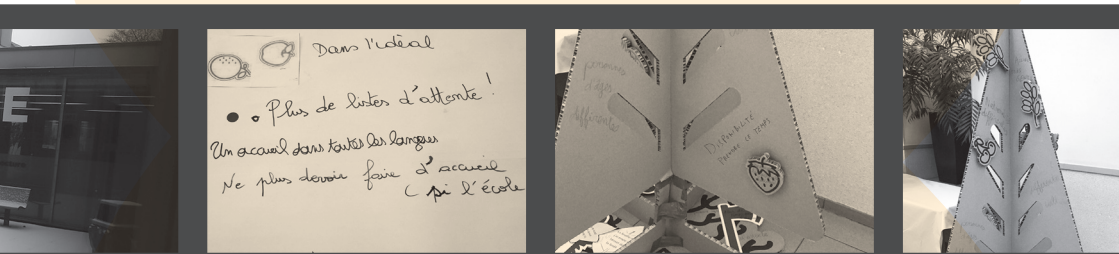 E
Dans l'idéal
Plus de listes d'attente !
Un accueil dans toutes les langues
Ne plus devoir faire d'accueil
( si l'école
personnes
d'âges
différentes
Disponibilité
Prendre le temps